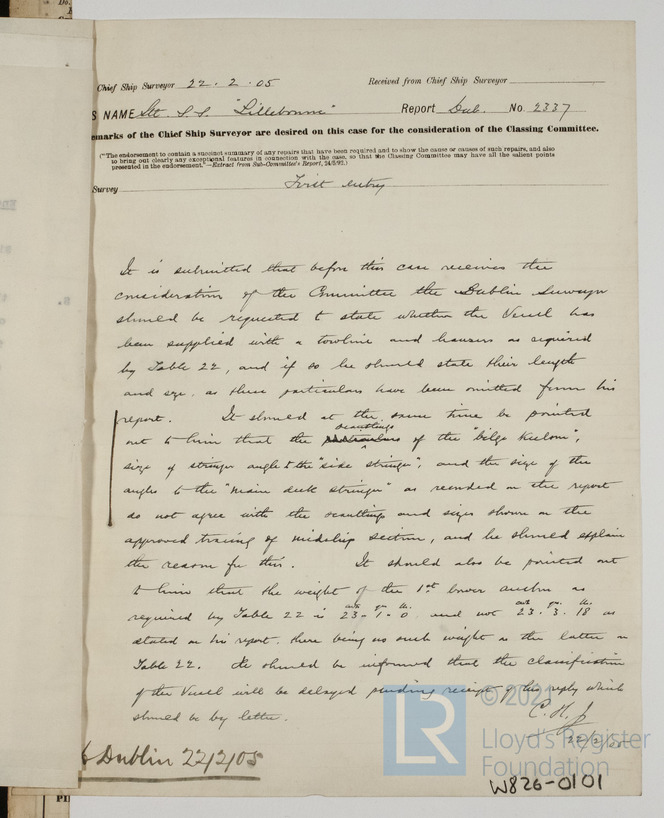 Chief Ship Surveyor 22.2.05 Received from Chief Ship Surveyor
S NAME Stl S.S. "Lillebonne" Report Dub. No. 2337
emarks of the Chief Ship Surveyor are desired on this case for the consideration of the Classing Committee.
("The endorsement to contain a succinct summary of any repairs that have been required and to show the cause or causes of such repairs, and also
to bring out clearly any exceptional features in connection with the case, so that the Classing Committee may have all the salient points
presented in the endorsement."—Extract from Sub-Committee's Report, 24/5/92.)
Survey First Entry
It is submitted that before this case receives the
consideration of the Committee the Dublin Surveyor
should be requested to state whether the Vessel has
been supplied with a towline and hawsers as required
by Table 22, and if so he should state their length
and size, as these particulars have been omitted from his
report. It should at the same time be pointed
scantlings
out to him that the of the "bilge keelson",
size of stringer angle to the "side stringer", and the size of the
angles to the "main deck stringer" as recorded on the report
do not agree with the scantlings and sizes shown on the
approved tracing of midship section, and he should explain
the reason for this. It should also be pointed out
to him that the weight of the 1st bower anchor as
cwts qrs lbs. cwts qrs. lbs
required by Table 22 is 23.1.0 and not 23.3.18 as
stated on his report, there being no such weight as the latter in
Table 22. He should be informed that the classification
of the Vessel will be delayed pending receipt of his reply which
should be by letter.
C.H.J.
22/2/05
Dublin 22/2/05
LR
© 2021
Lloyd's Register
Foundation
W826-0101